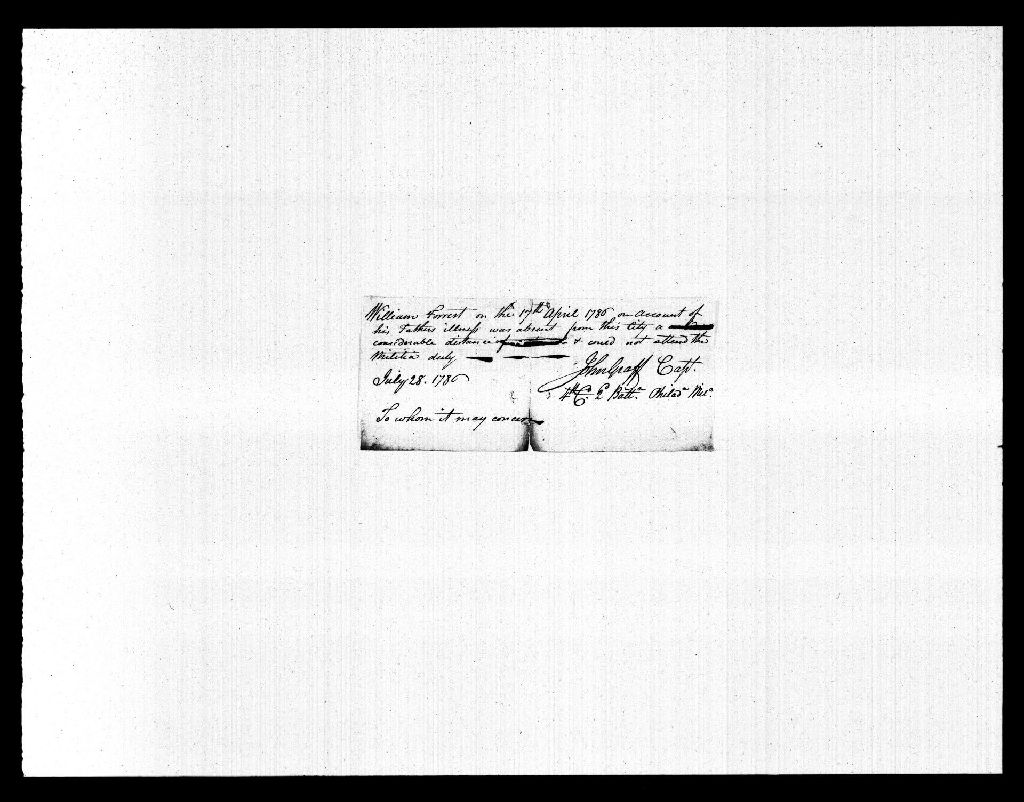 William Forrest on the 17th April 1786 on account of
his Fathers illness was absent from this City a
considerable distance & could not attend the
Militia duty
John Graff Capt.
July 28. 1786
4th C. 2 Batt. Philada Mil.
To whom it may concern